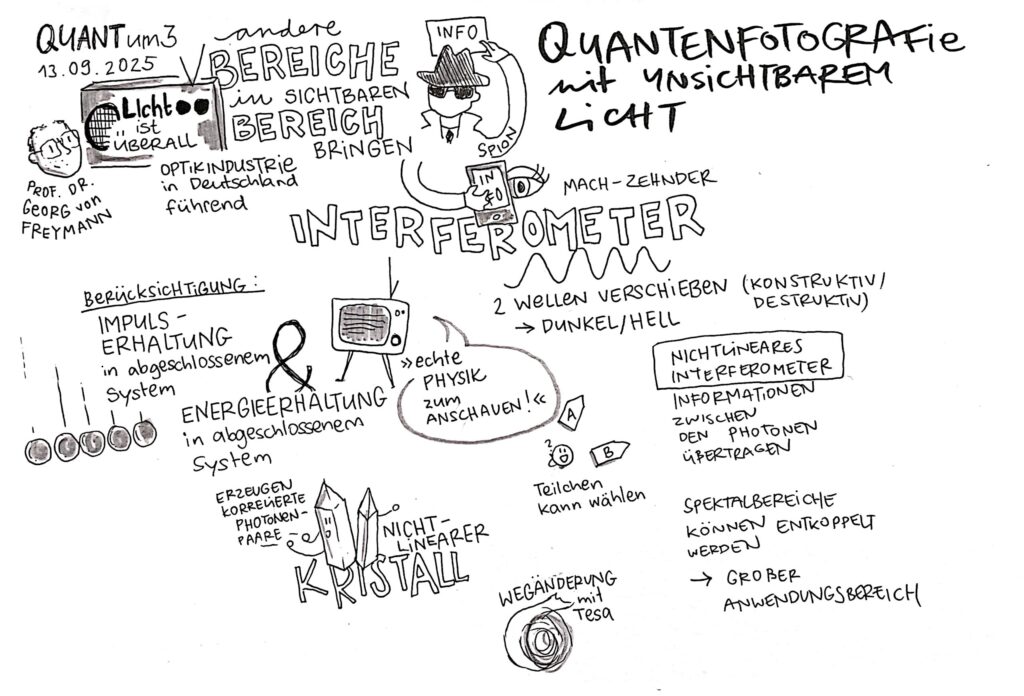 QUANTum3
13.09.2025
Licht
ist
ÜBERALL
PROF. DR.
GEORG von
FREYMANN
OPTIKINDUSTRIE
in Deutschland
führend
andere
BEREICHE
in SICHTBAREN
BEREICH
BRINGEN
INFO
SPION
INFO
QUANTENFOTOGRAFie
mit UNSICHTBAREM
LiCHT
MACH-ZEHNDER
INTERFEROMETER
2 WELLEN VERSCHIEBEN (KONSTRUKTIV/
DESTRUKTIV)
→ DUNKEL/HELL
BERÜCKSICHTIGUNG:
IMPULS-
ERHALTUNG
in abgeschlossenem
System
&
ENERGIEERHALTUNG
in abgeschlossenem
System
»echte
PHYSIK
zum
ANSCHAUEN!«
NICHTLINEARES
INTERFEROMETER
INFORMATIONEN
ZWISCHEN
DEN PHOTONEN
ÜBERTRAGEN
A
?
B
Teilchen
kann wählen
ERZEUGEN
KORRELIERTE
PHOTONEN-
PAARE
NICHT-
LINEARER
KRISTALL
SPEKTALBEREICHE
KÖNNEN ENTKOPPELT
WERDEN
→ GROßER
ANWENDUNGSBEREICH
WEGÄNDERUNG
mit
Tesa